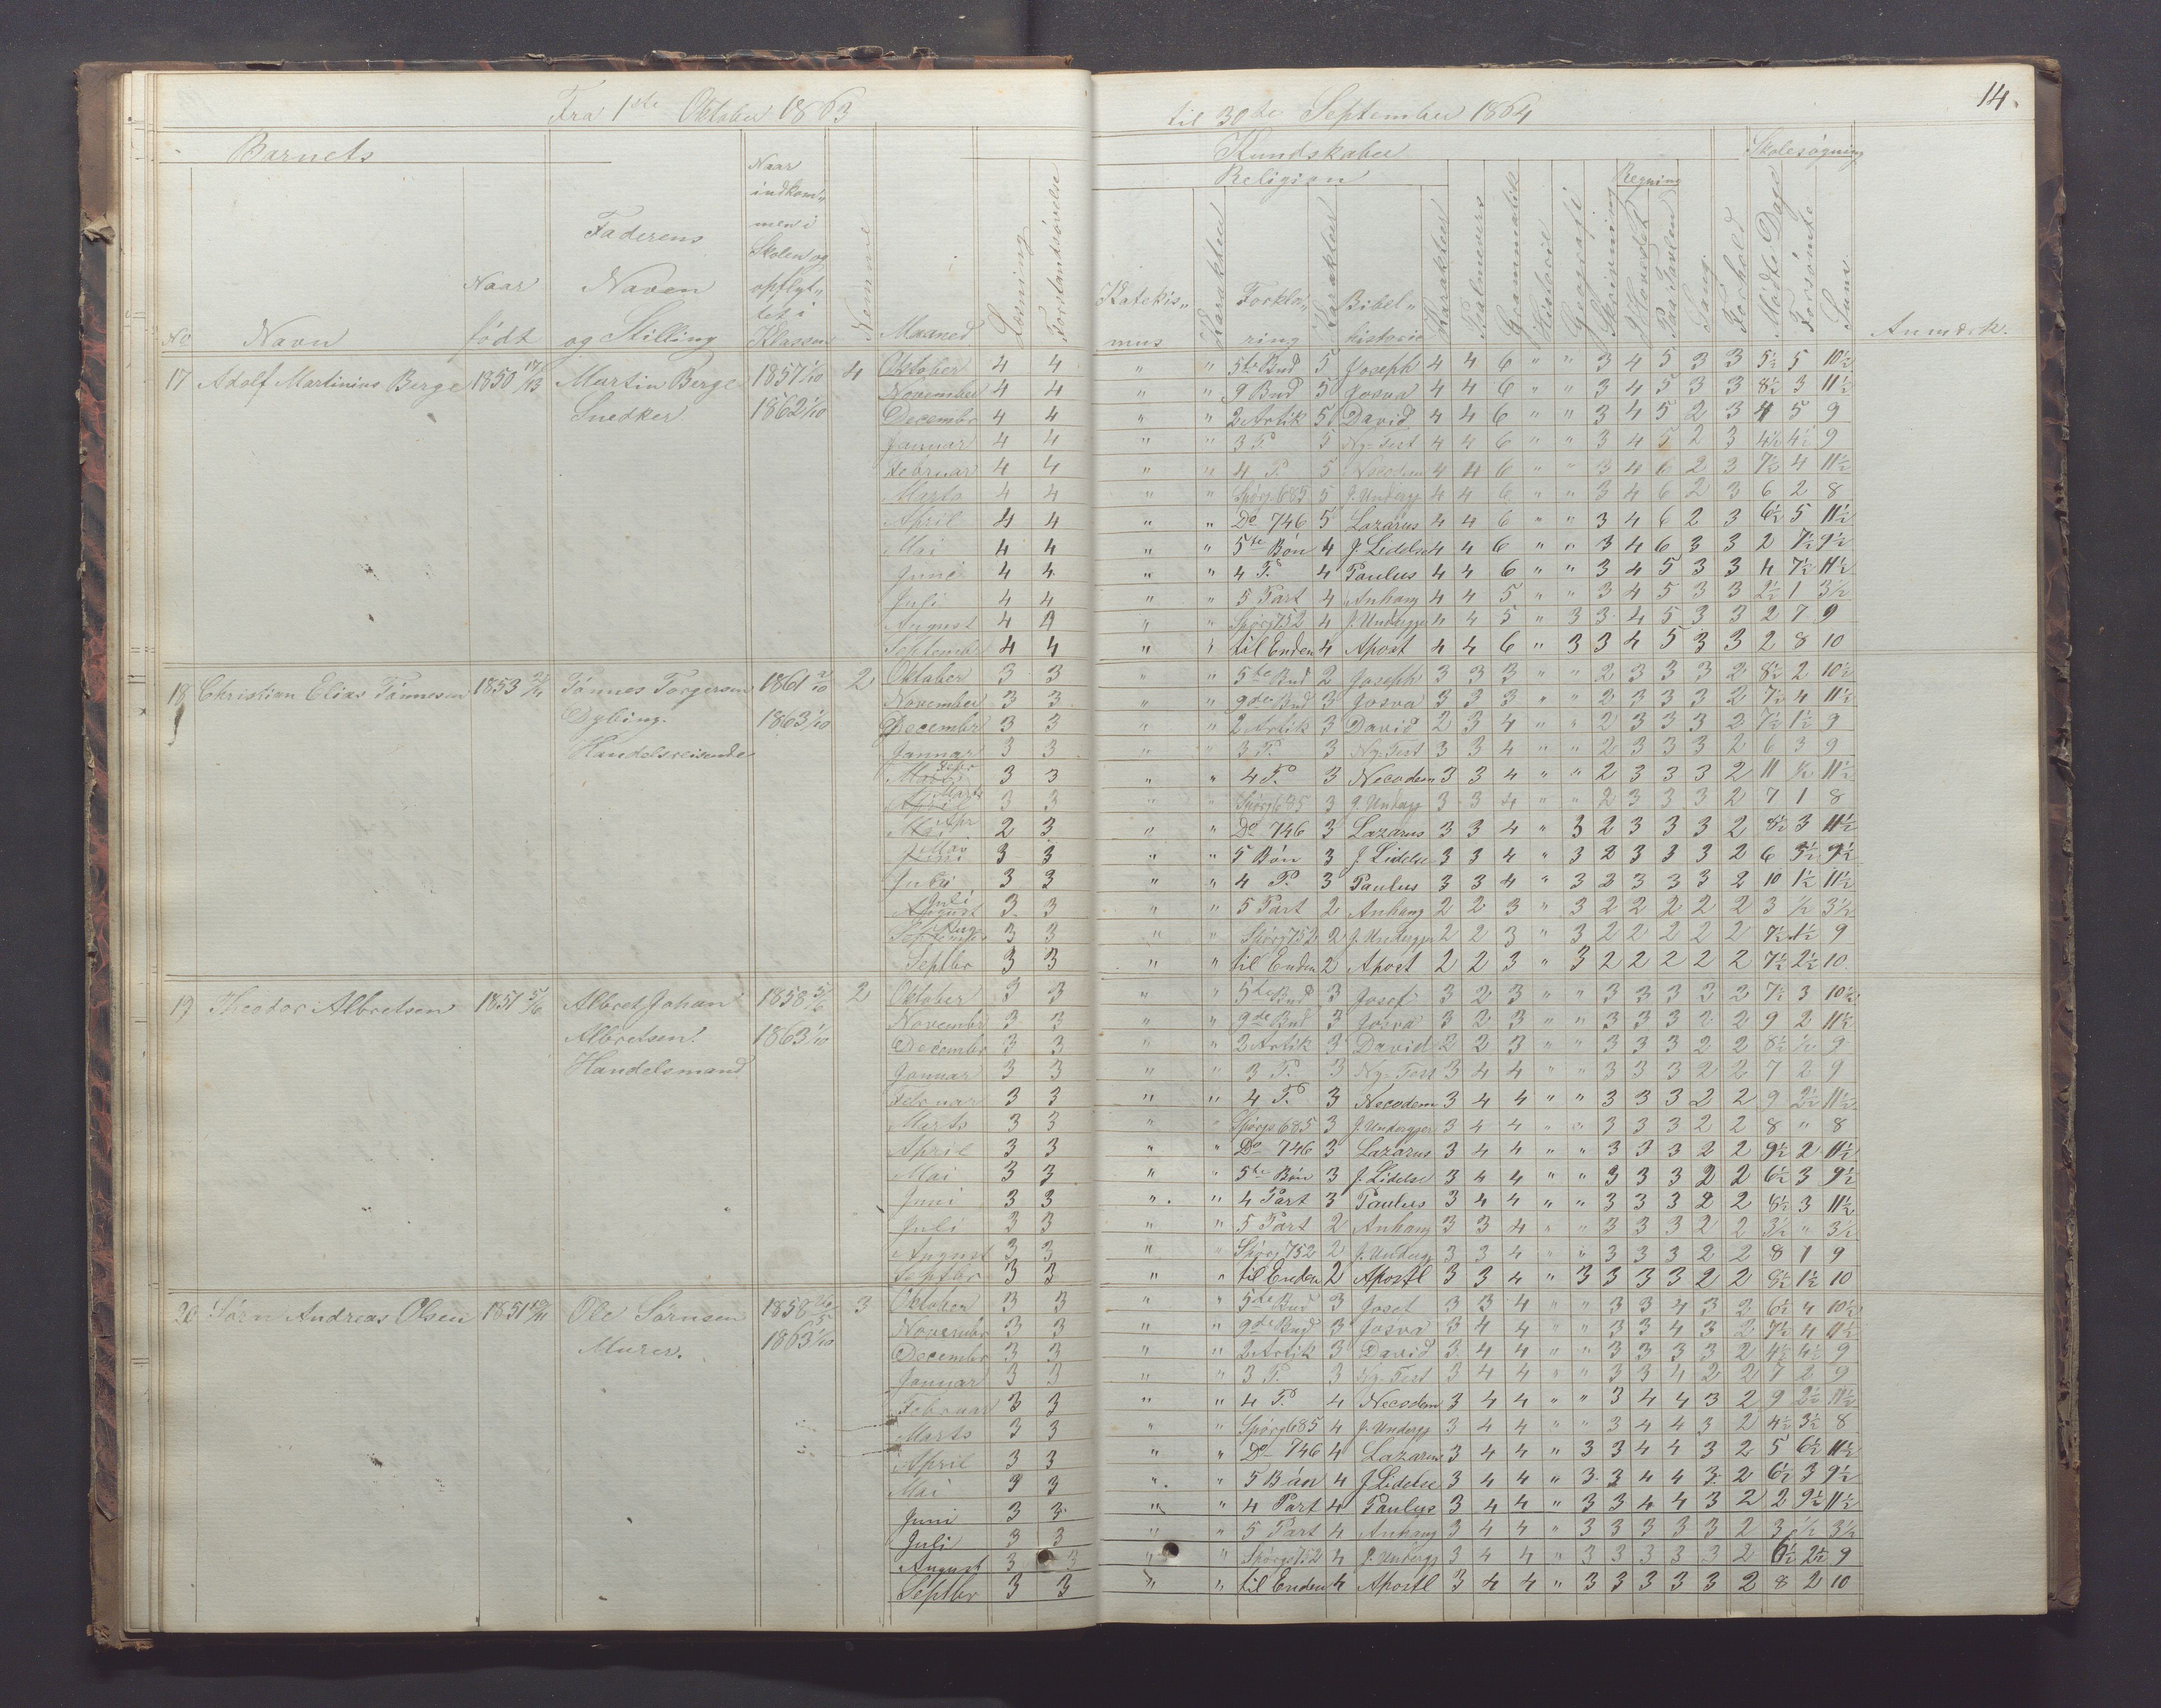 14.
Fra 1ste Oktober 1863
til 30te September 1864
Barnets
Kundskaber
Skolesøgning
Religion
Regning
No
Navn
Naar født
Faderens Navn og Stilling
Naar indkommen i Skolen og opflyttet i Klassen
Nemme
Maaned
Læsning
Forstandsøvelse
Katekismus
Karakter
Forklaring
Karakter
Bibelhistorie
Karakter
Psalmevers
Grammatik
Historie
Geografi
Skrivning
I Hovedet
Paa Tavlen
Sang
Forhold
Mødte Dage
Forsømte
Sum
Anmærk.
17 Adolf Martinius Berge 1850 Martin Berge 1857 1/10 4 Oktober 4 4 " " 5te Bud 5 Joseph 4 4 6 " " 3 4 5 3 3 5½ 5 10½
Snedker 1862 1/10
November 4 4 " " 9 Bud 5 Josva 4 4 6 " " 3 4 5 3 3 8½ 3 11½
Decembr 4 4 " " 2 Artik 5 David 4 4 6 " " 3 4 5 2 3 4 5 9
Januar 4 4 " " 3 P. 5 Ny-Test 4 4 6 " " 3 4 5 2 3 4½ 4½ 9
Februar 4 4 " " 4 P. 5 Necodem 4 4 6 " " 3 4 6 2 3 7½ 4 11½
Marts 4 4 " " Spørgs 685 5 J. Undergj 4 4 6 " " 3 4 6 2 3 6 2 8
April 4 4 " " Do 746 5 Lazarus 4 4 6 " " 3 4 6 2 3 6½ 5 11½
Mai 4 4 " " 5te Bön 4 J. Lidelse 4 4 6 " " 3 4 6 3 3 2 7½ 9½
Juni 4 4 " " 4 P. 4 Paulus 4 4 6 " " 3 4 5 3 3 4 7½ 11½
Juli 4 4 " " 5 Part 4 Anhang 4 4 5 " " 3 4 5 3 3 2½ 1 3½
August 4 4 " " Spørg 752 4 J. Undergj 4 4 5 " 3 3 4 5 3 3 2 7 9
Septembr 4 4 " " til Enden 4 Apost 4 4 6 " 3 3 4 5 3 3 2 8 10
18 Christian Elias Tönnesen 1853 Tönnes Torgersen 1861 2 Oktober 3 3 " " 5te Bud 2 Joseph 3 3 3 " " 2 3 3 3 2 8½ 2 10½
Dybing. 1863 1/10
Handelsreisende
November 3 3 " " 9de Bud 3 Josva 3 3 3 " " 2 3 3 3 2 7½ 4 11½
December 3 3 " " 2 Artik 3 David 2 3 4 " " 2 3 3 3 2 7½ 1½ 9
Januar 3 3 " " 3 P. 3 Ny-Test 3 3 4 " " 2 3 3 3 2 6 3 9
Febr 3 3 " " 4 P. 3 Necodem 3 3 4 " " 2 3 3 3 2 11 ½ 11½
Marts 3 3 " " Spørgs 685 3 J. Undergj 3 3 4 " " 2 3 3 3 2 7 1 8
Apr 2 3 " " Do 746 3 Lazarus 3 3 4 " 3 2 3 3 3 2 8½ 3 11½
Mai 3 3 " " 5 Bön 3 J. Lidelse 3 3 4 " 3 2 3 3 3 2 6 3½ 9½
Juni 3 3 " " 4 P. 3 Paulus 3 3 4 " 3 2 3 3 3 2 10 1½ 11½
Juli 3 3 " " 5 Part 2 Anhang 2 2 3 " 3 2 2 2 2 2 3 ½ 3½
Aug 3 3 " " Spörg 752 2 J. Undergj 2 2 3 " 3 2 2 2 2 2 7½ 1½ 9
Septbr 3 3 " " til Enden 2 Apost 2 2 3 " 3 2 2 2 2 2 7½ 2½ 10
19 Theodor Albretsen 1851 Albret Johan 1858 2 Oktober 3 3 " " 5te Bud 3 Josef 3 2 3 " " 3 3 3 2 2 7½ 3 10½
Albretsen. 1863 1/10
Handelsmand
Novembr 3 3 " " 9de Bud 3 Josva 3 2 3 " " 3 3 3 2 2 9 2 11½
Decembr 3 3 " " 2 Artik 3 David 2 2 3 " " 3 3 3 2 2 8½ ½ 9
Januar 3 3 " " 3 P. 3 Ny-Test 3 4 4 " " 3 3 3 2 2 7 2 9
Februar 3 3 " " 4 P. 3 Necodem 3 4 4 " " 3 3 3 2 2 9 2½ 11½
Marts 3 3 " " Spørgs 685 3 J. Undergjer 3 4 4 " " 3 3 3 2 2 8 " 8
April 3 3 " " Do 746 3 Lazarus 3 4 4 " " 3 3 3 2 2 9½ 2 11½
Mai 3 3 " " 5te Bön 3 J. Lidelse 3 4 4 " " 3 3 3 2 2 6½ 3 9½
Juni 3 3 " " 4 Part 3 Paulus 3 4 4 " " 3 3 3 2 2 8½ 3 11½
Juli 3 3 " " 5 Part 2 Anhang 3 3 4 " " 3 3 3 2 2 3½ " 3½
August 3 3 " " Spörg 752 2 J. Undergj 3 3 4 " " 3 3 3 2 2 8 1 9
Septbr 3 3 " " til Enden 2 Apostl 3 3 4 " 3 3 3 3 2 2 8½ 1½ 10
20 Sörn Andreas Olsen 1851 Ole Sörnsen 1858 3 Oktober 3 3 " " 5te Bud 3 Josef 3 3 4 " " 3 3 4 3 2 6½ 4 10½
Murer. 1863 1/10
Novembr 3 3 " " 9de Bud 3 Josva 3 4 4 " " 3 3 4 3 2 7½ 4 11½
Decembr 3 3 " " 2 Artik 3 David 3 4 4 " " 3 3 3 3 2 4½ 4½ 9
Januar 3 3 " " 3 P. 3 Ny-Test 3 4 4 " " 3 3 4 2 2 7 2 9
Februar 3 3 " " 4 P. 4 Necodem 3 4 4 " " 3 4 4 3 2 9 2½ 11½
Marts 3 3 " " Spörgs 685 4 J. Undergj 3 4 4 " " 3 4 4 3 2 4½ 3½ 8
April 3 3 " " Do 746 4 Lazarus 3 4 4 " 3 3 4 4 3 2 5 6½ 11½
Mai 3 3 " " 5 Bön 4 J. Lidelse 3 4 4 " 3 3 4 4 3 2 6½ 3 9½
Juni 3 3 " " 4 Part 4 Paulus 3 4 4 " 3 3 4 4 3 2 2 9½ 11½
Juli 3 3 " " 5 Part 4 Anhang 3 4 4 " 3 3 3 3 3 2 3 ½ 3½
August 3 3 " " Spörgs 752 4 J. Undergj 3 4 4 " 3 3 3 3 3 2 6½ 2½ 9
Septbr 3 3 " " til Enden 4 Apostl 3 4 4 " 3 3 3 3 3 2 8 2 10